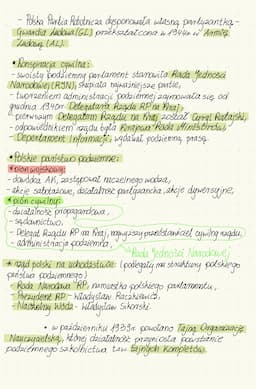 - Polska Partia Robotnicza dysponowała własną partyzantką -
Gwardia Ludowa (GL) przekształcona w 1944r w Armię
Ludową (AL).
• Konspiracja cywilna:
- swoisty podziemny parlament stanowiła Rada Jedności
Narodowej (RJN), skupiała najważniejsze partie,
- tworzeniem administracji podziemnej zajmowała się od
grudnia 1940r Delegatura Rządu RP na Kraj,
- pierwszym Delegatem Rządu na Kraj został Cyryl Ratajski,
- odpowiednikiem rządu była Krajowa Rada Ministrów,
- Departament Informacji, wydawał podziemną prasę.
• Polskie państwo podziemne:
* pion wojskowy:
- dowódca AK, zastępował naczelnego wodza,
- akcje sabotażowe, działalność partyzancka, akcje dywersyjne,
* pion cywilny:
- działalność propagandowa,
- sądownictwo,
- Delegat Rządu RP na Kraj, najwyższy przedstawiciel cywilny rządu,
- administracja podziemna,
Rada Jedności Narodowej
* rząd polski na uchodźstwie (podlegały mu struktury polskiego
państwa podziemnego)
- Rada Narodowa RP, namiastka polskiego parlamentu,
- Prezydent RP - Władysław Raczkiewicz,
- Naczelny Wódz - Władysław Sikorski.
• w październiku 1939r powołano Tajną Organizację
Nauczycielską, której działalność przyniosła powstanie
podziemnego szkolnictwa tzw tajnych kompletów.